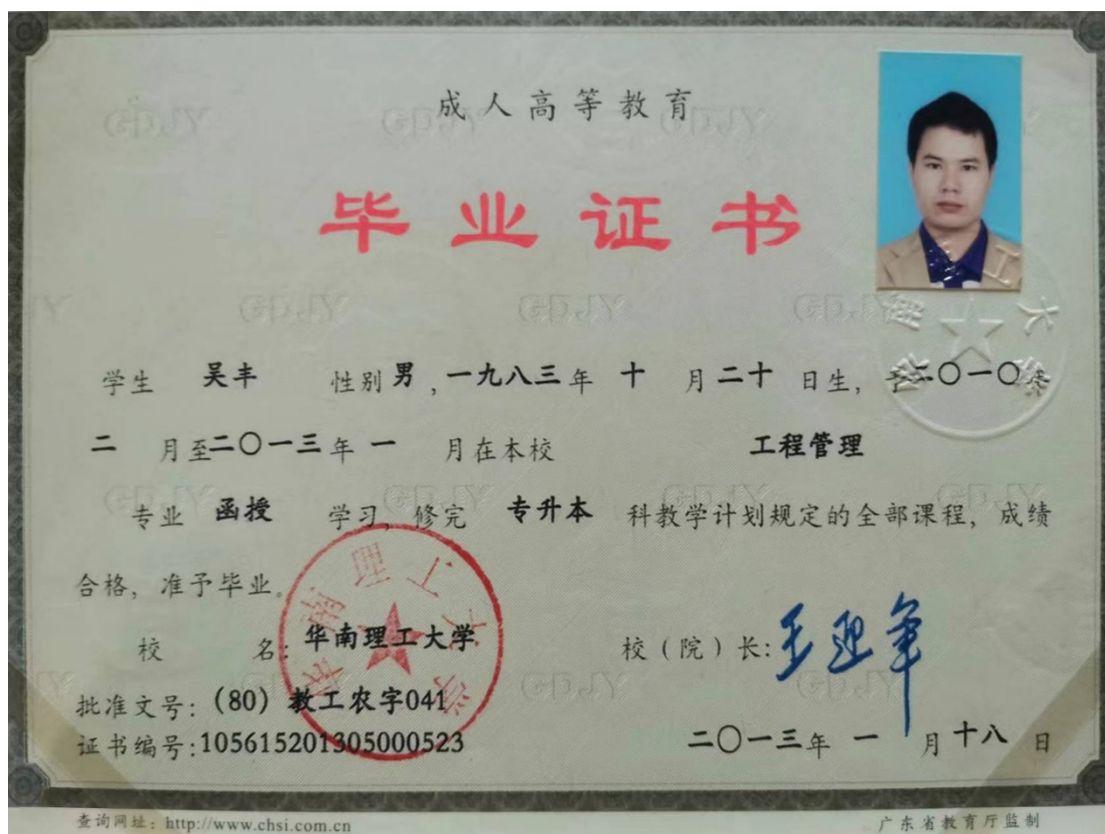 成人高等教育
毕业证书
学生 吴丰 性别 男 ,一九八三年 十 月 二十 日生, 于二〇一〇年
二 月至二〇一三年 一 月在本校 工程管理
专业 函授 学习, 修完 专升本 科教学计划规定的全部课程, 成绩
合格, 准予毕业。
校 名: 华南理工大学 校(院)长: 王迎军
批准文号: (80) 教工农字041
证书编号:105615201305000523 二〇一三年 一 月 十八 日
华南理工大学
查询网址: http://www.chsi.com.cn 广东省教育厅监制
GDJY